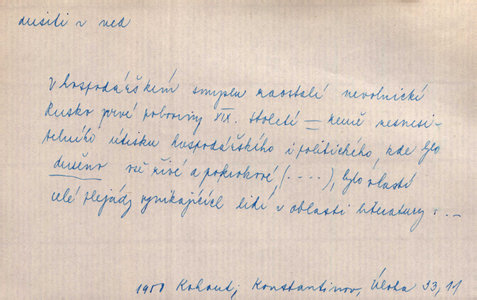 dusiti v ned
V hospodářském smyslu zaostalé nevolnické
Rusko prvé poloviny XIX. století = země nesnesi-
telného útisku hospodářského i politického, kde bylo
dušeno vše živé a pokrokové, (....), bylo vlastí
celé plejády vynikajících lidí v oblasti literatury ...
1950 Kohout; Konstantinov, Úloha 33, 11